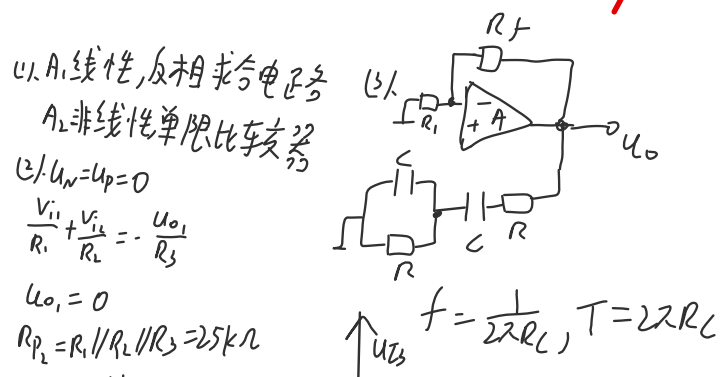 (1). A₁线性,反相求和电路
A₂非线性,单限比较器
(2). u_N=u_P=0
V_i1/R₁ + V_i2/R₂ = - u_o1/R₃
u_o1 = 0
R_P2 = R₁//R₂//R₃ = 25kΩ
(3).
Rf
R₁
- + A
u₀
C
C
R
R
f = 1/2πRC, T = 2πRC